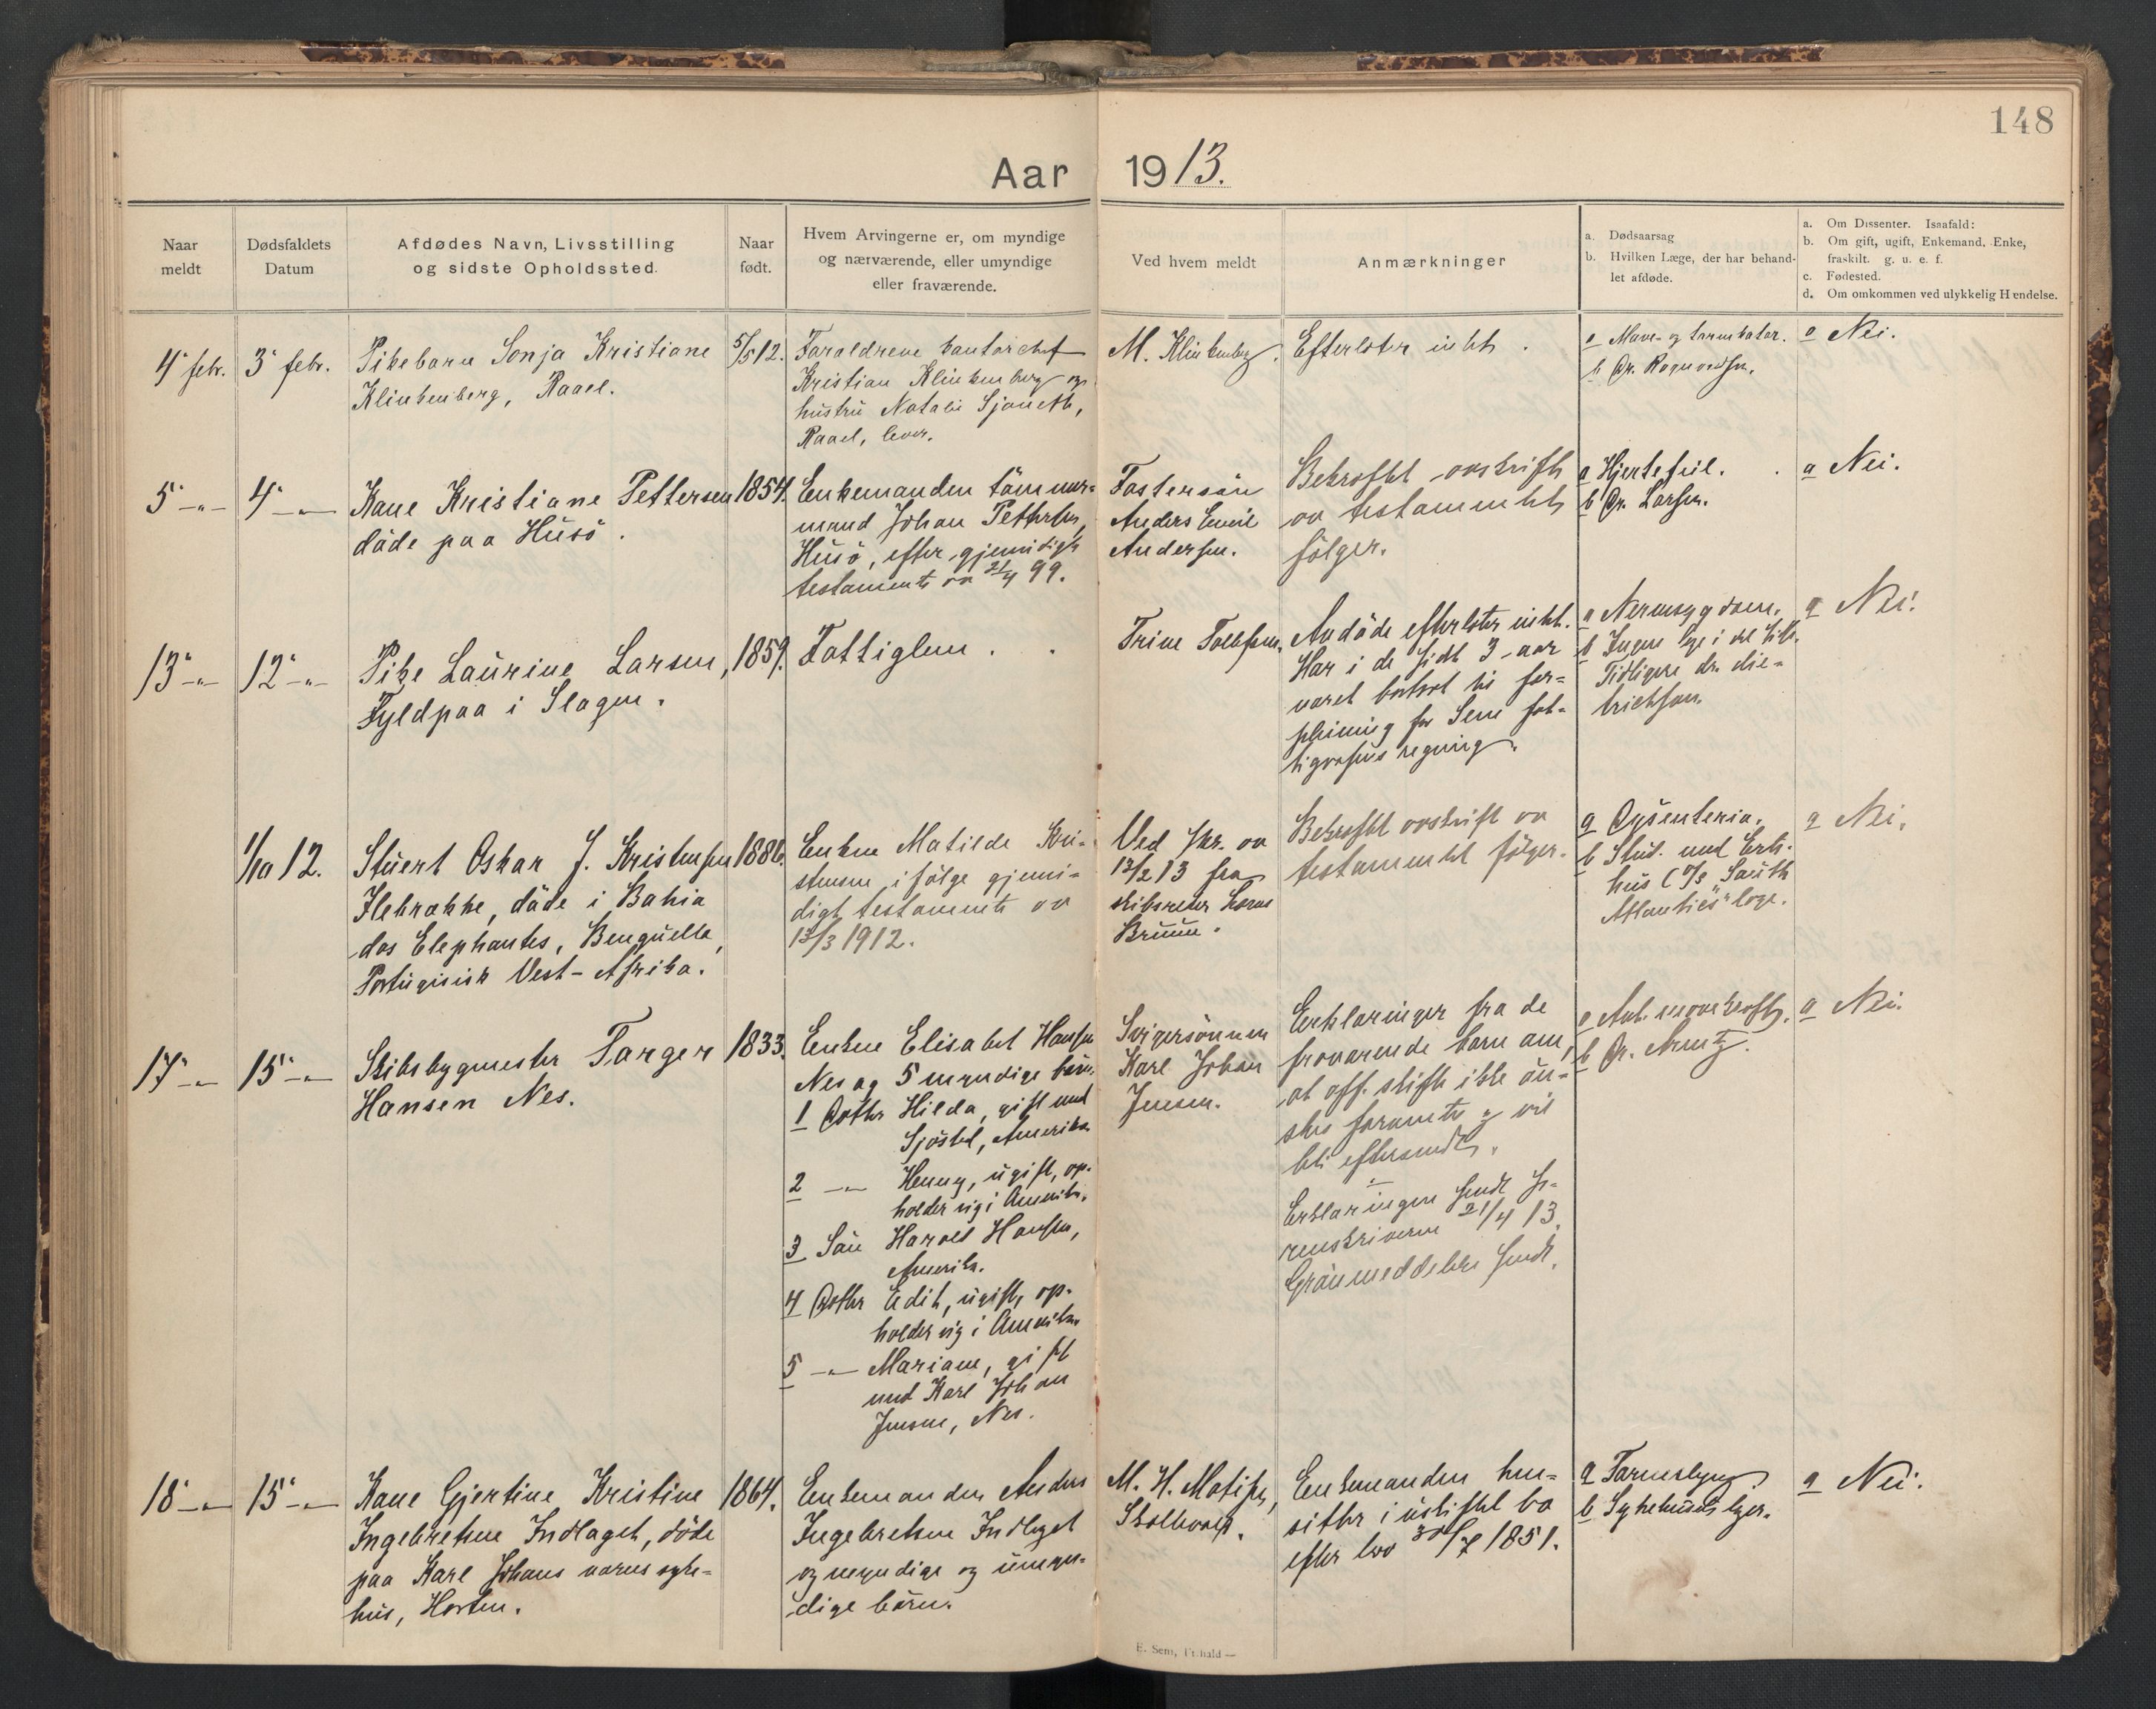 148
Aar 1913.
Naar
meldt
Dødsfaldets
Datum
Afdødes Navn, Livsstilling
og sidste Opholdssted.
Naar
født.
Hvem Arvingerne er, om myndige
og nærværende, eller umyndige
eller fraværende.
Ved hvem meldt
Anmærkninger
a. Dødsaarsag
b. Hvilken Læge, der har behand-
let afdøde.
a. Om Dissenter. Isaafald:
b. Om gift, ugift, Enkemand, Enke,
fraskilt. g. u. e. f.
c. Fødested.
d. Om omkommen ved ulykkelig Hændelse.
4' febr.
3' febr.
Pikebarn Sonja Kristiane
Klinkenberg, Raael.
5/5 12.
Forældrene kontorchef
Kristian Klinkenberg og
hustru Natalie Sjoneth,
Raael, lever.
M. Klinkenberg.
Efterlater intet.
a Mave- og tarmkatar.
b Dr. Rognvedsen.
a Nei.
5 -"-
4 -"-
Kone Kristiane Pettersen
døde paa Husø.
1854.
Enkemanden tømmer-
mand Johan Pettersen,
Husø, efter gjensidigt
testamente av 21/4 99.
Fostersøn
Anders Emil
Andersen.
Bekræftet avskrift
av testamentet
følger.
a Hjertefeil.
b Dr. Larsen.
a Nei.
13 -"-
12 -"-
Pike Laurine Larsen,
Fyldpaa i Slagen.
1859.
Fattiglem.
Trine Tollefsen.
Avdøde efterlater intet.
Har i de sidste 3 aar
været bortsat til for-
pleining for Sem fat-
tigvæsens regning.
a Nervesygdom.
b Ingen læge i det siste.
Tidligere dr. die-
trichson.
a Nei.
1/10 12.
Stuert Oskar J. Kristensen
Flebrække, døde i Bahia
dos Elephantes, Benguella,
Portugisisk Vest-Afrika.
1886.
Enken Matilde Kri-
stensen ifølge gjensi-
digt testamente av
13/3 1912.
Ved skr. av
13/2 13 fra
skibsreder Lorens
Bruun.
Bekræftet avskrift av
testamentet følger.
a Dysenteria.
b Stud. med Erts-
hus (D/S "South
Atlantics" læge.
a Nei.
17 -"-
15 -"-
Skibsbygmester Torger
Hansen Nes.
1833.
Enken Elisabet Hansen
Nes og 5 myndige børn:
1 Datter Hilda, gift med
Sjøsted, Amerika
2 -"- Henny, ugift, op-
holder sig i Amerika.
3 Søn Harold Hansen,
Amerika.
4 Datter Edith, ugift, op-
holder sig i Amerika
5 -"- Mariane, gift
med Karl Johan
Jensen, Nes.
Svigersønnen
Karl Johan
Jensen.
Erklæringer fra de
fraværende børn om,
at off. skifte ikke øn-
skes foretaget vil
bli eftersendt.
Erklæringen sendt So-
renskriveren 21/4 13.
Grønmeddelelse sendt.
b Dr. Arentz.
a Nei.
18 -"-
15 -"-
Kone Gjertine Kristine
Ingebretsen Indlaget, døde
paa Karl Johans værns syke-
hus, Horten.
1864.
Enkemanden Anders
Ingebretsen Indlaget
og myndige og umyn-
dige børn.
M. H. Matisen,
Skallevold.
Enkemanden hen-
sitter i uskiftet bo
efter lov 30/7 1851.
a Tarmslyng.
b Sykehusets læger.
a Nei.
E. Sem, Fr.hald —